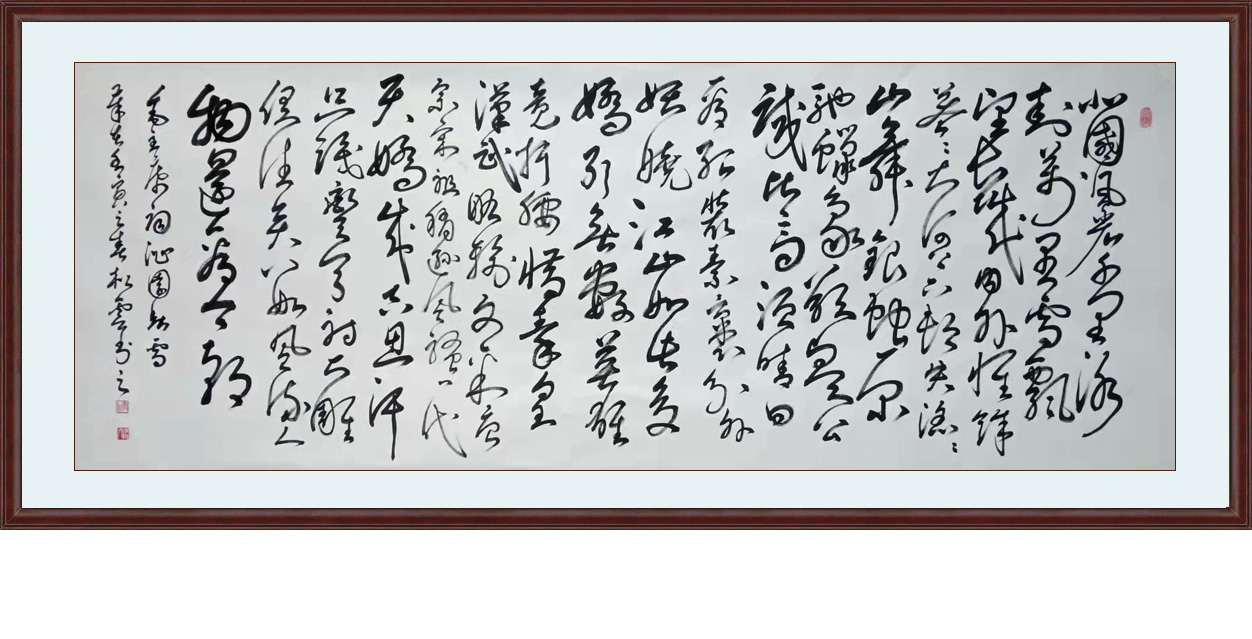 北國風光千里冰
封萬里雪飄
望長城内外惟餘
莽々大河上下頓失滔々
山舞銀蛇原
馳蠟象欲與天公
試比高須晴日
看紅裝素裹分外
妖嬈江山如此多
嬌引無數英雄
競折腰惜秦皇
漢武略輸文采唐
宗宋祖稍遜風騷一代
天嬌成吉思汗
只識彎弓射大雕
俱往矣數風流人
物還看今朝
毛主席詞沁園春雪
寅之春松雲書之